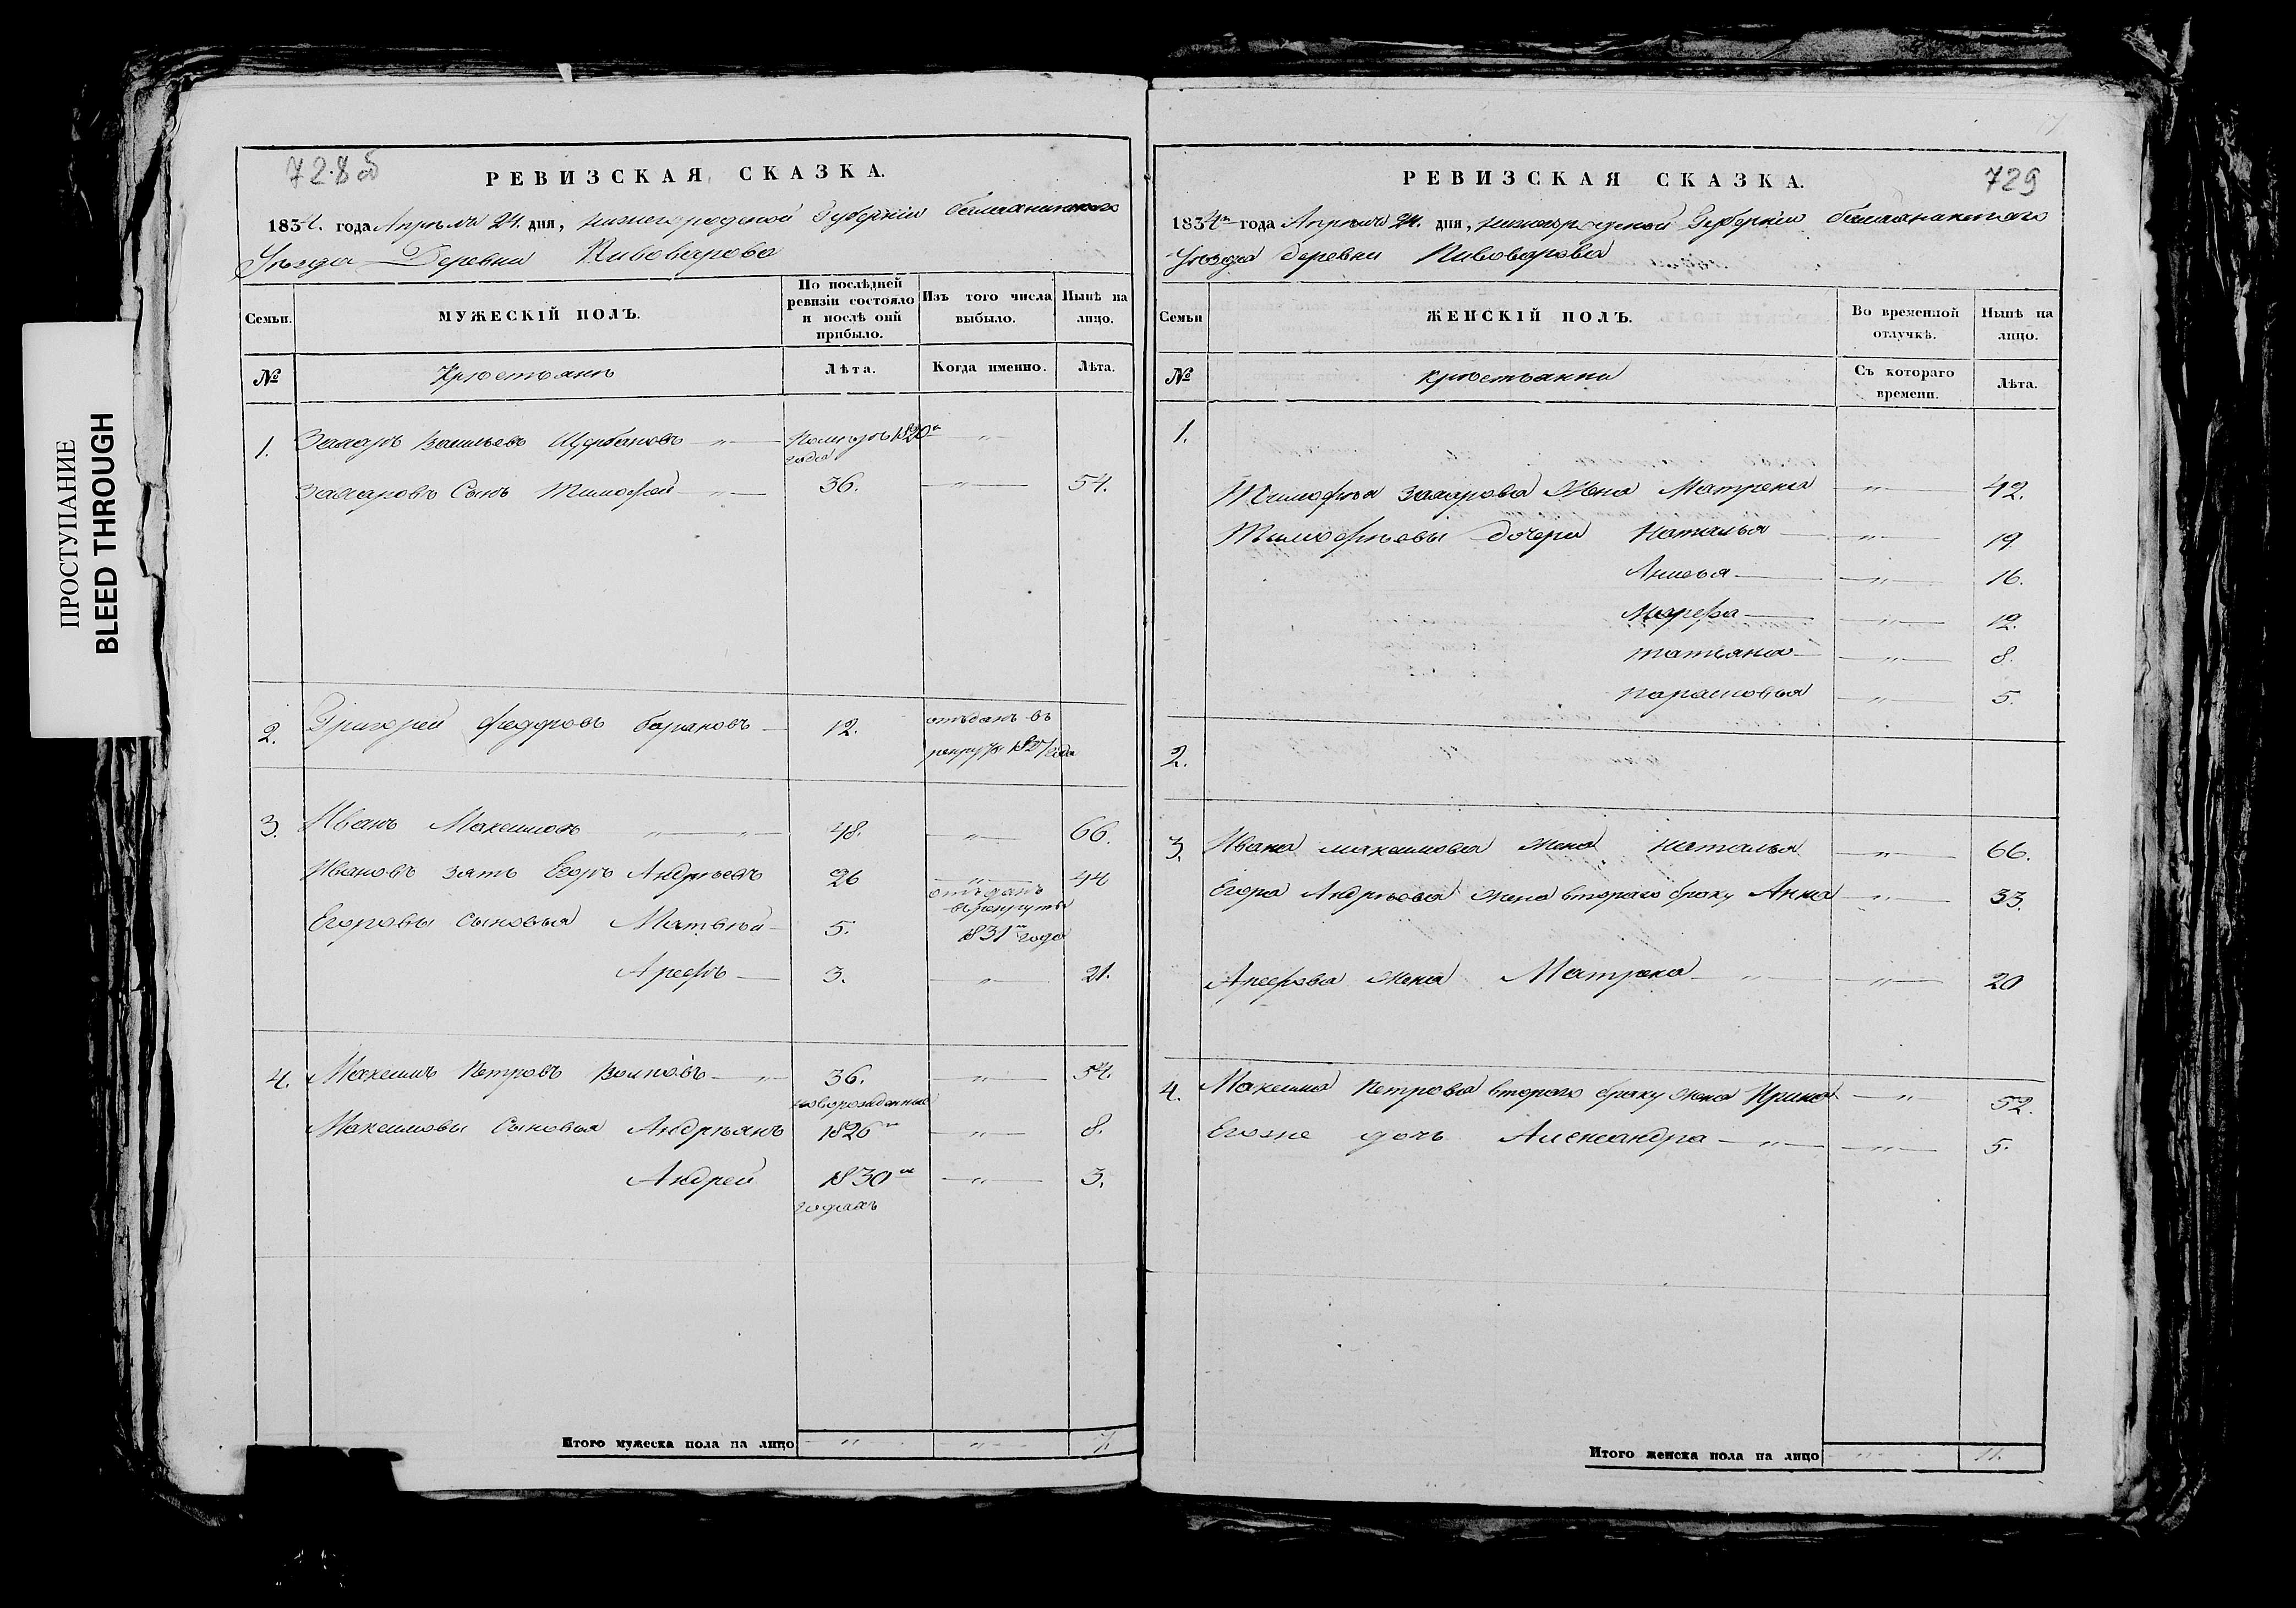 ПРОСТУПАНИЕ
BLEED THROUGH
728об
РЕВИЗСКАЯ СКАЗКА.
1834. года Апреля 24. дня, Нижегородской Губернiи Балахнинскаго
Уѣзда Деревни Пивоварова
Семьи. МУЖЕСКIЙ ПОЛЪ. По послѣдней ревизiи состояло и послѣ онй прибыло. Изъ того числа выбыло. Нынѣ на лицо.
№ Крестьянъ Лѣта. Когда именно. Лѣта.
1. Захаръ Васильевъ Щербаковъ — " — 1820го " —
года
Захаровъ Сынъ Тимофей — " — 36. — " — 54.
2. Григорей Федоровъ Барановъ — 12. отъданъ въ
рекруты 1827 года
3. Иванъ Максимовъ " — " — 48. — " — 66.
Ивановъ зять Егоръ Андреевъ 26 — " — 44
Егоровы сыновья Матвѣй — 5. отъданъ
в рекруты
1831го года
Арефъ — 3. — " — 21.
4. Максимъ Петровъ Волковъ — " — 36. — " — 54.
новорожденные
Максимовы Сыновья Андреянъ 1826го — " — 8.
Андрей 1830го — " — 3.
годахъ
Итого мужеска пола на лицо " — — " — 7.
729
РЕВИЗСКАЯ СКАЗКА.
1834го года Апреля 24. дня, Нижегородской Губернiи Балахнинскаго
Уѣзда Деревни Пивоварова
Семьи ЖЕНСКIЙ ПОЛЪ. Во временной отлучкѣ. Нынѣ на лицо.
№ крестьянки Съ котораго времени. Лѣта.
1.
Тимофея Захарова Жена Матрена — " — 42.
Тимофеевы дочери Наталья — — " — 19.
Анисья — — " — 16.
Марефа — — " — 12.
Татьяна — — " — 8.
Парасковья — " — 5.
2.
3. Ивана Максимова жена Наталья — " — 66.
Егора Андреева жена втораго браку Анна — " — 33.
Арефова жена Матрена — " — — " — 20
4. Максима Петрова втораго браку жена Ирина — " 52.
Егоже дочь Александра — " — — " — 5.
Итого женска пола на лицо " — 11.